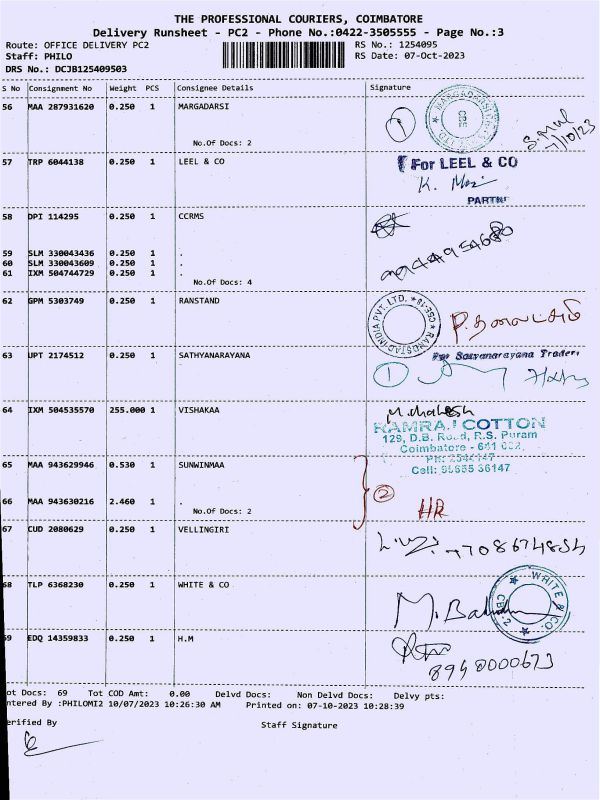 THE PROFESSIONAL COURIERS, COIMBATORE
Delivery Runsheet - PC2 - Phone No.:0422-3505555 - Page No.:3
Route: OFFICE DELIVERY PC2 RS No.: 1254095
Staff: PHILO RS Date: 07-Oct-2023
DRS No.: DCJB125409503
S No Consignment No Weight PCS Consignee Details Signature
56 MAA 287931620 0.250 1 MARGADARSI
1
S. Mul
7/10/23
No.Of Docs: 2
57 TRP 6044138 0.250 1 LEEL & CO
For LEEL & CO
K.
PARTN
58 DPI 114295 0.250 1 CCRMS
59 SLM 330043436 0.250 1 .
60 SLM 330043609 0.250 1 .
61 IXM 504744729 0.250 1 .
No.Of Docs: 4
62 GPM 5303749 0.250 1 RANSTAND
RANDSTAD INDIA PVT. LTD.
63 UPT 2174512 0.250 1 SATHYANARAYANA
For Satyanarayana Traders
1
64 IXM 504535570 255.000 1 VISHAKAA
M. Mahesh
RAMRAJ COTTON
129, D.B. Road, R.S. Puram
Coimbatore - 641 002.
65 MAA 943629946 0.530 1 SUNWINMAA
2
66 MAA 943630216 2.460 1 .
HR
No.Of Docs: 2
67 CUD 2080629 0.250 1 VELLINGIRI
708674854
68 TLP 6368230 0.250 1 WHITE & CO
WHITE & CO.
CBE-2
69 EDQ 14359833 0.250 1 H.M
8940000673
ot Docs: 69 Tot COD Amt: 0.00 Delvd Docs: Non Delvd Docs: Delvy pts:
ntered By :PHILOMI2 10/07/2023 10:26:30 AM Printed on: 07-10-2023 10:28:39
erified By Staff Signature